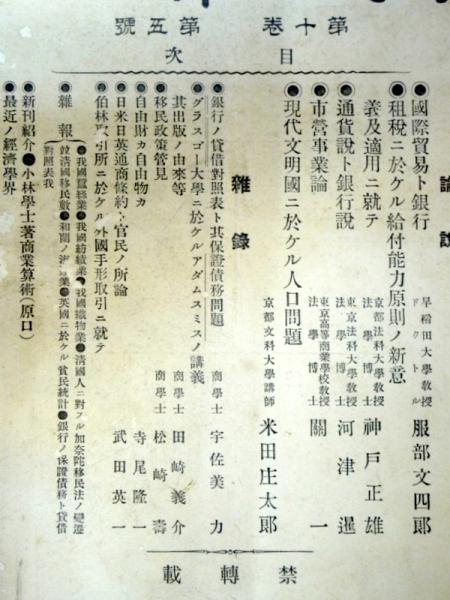 第十巻 第五號
目次
論說
●國際貿易ト銀行 早稻田大學敎授 ドクトル 服部文四郞
●租稅ニ於ケル給付能力原則ノ新意
義及適用ニ就テ 京都法科大學敎授 法學博士 神戶正雄
●通貨說ト銀行說 東京法科大學敎授 法學博士 河津暹
●市營事業論 東京高等商業學校敎授 法學博士 關一
●現代文明國ニ於ケル人口問題 京都文科大學講師 米田庄太郞
雜錄
●銀行ノ貸借對照表ト其保證債務問題 商學士 宇佐美力
●グラスゴー大學ニ於ケルアダムスミスノ講義
其出版ノ由來等 商學士 田崎義介
●移民政策管見 商學士 松崎壽
●自由財カ自由物カ 寺尾隆一
●日米日英通商條約ト官民ノ所論
●伯林取引所ニ於ケル外國手形取引ニ就テ 武田英一
●雜報 ●我國蠶絲業●我國紡績業●我國織物業●淸國人ニ對スル加奈陀移民法ノ變遷
淸國移民數●和蘭ノ ●英國ニ於ケル貧民統計●銀行ノ保證債務ト貸借
對照表我
●新刊紹介●小林學士著商業算術(原口)
●最近ノ經濟學界
禁轉載